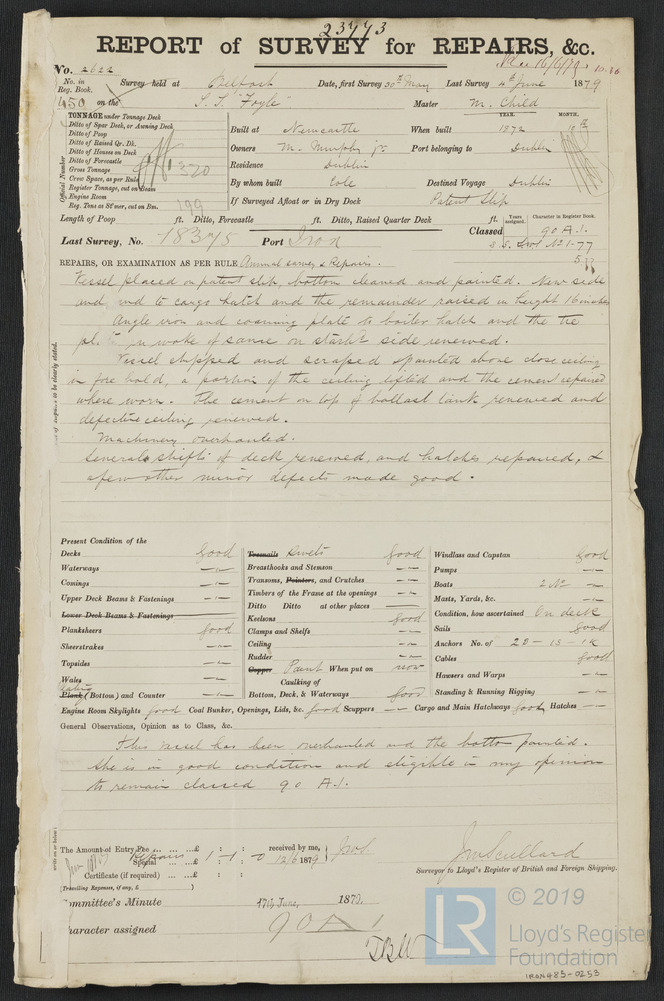 23773
REPORT of SURVEY for REPAIRS, &c.
No. 2622
No. in Reg. Book. Survey held at Belfast Date, first Survey 30th May Last Survey 4th June 1879
450 on the S.S. "Foyle" Master M. Child
TONNAGE under Tonnage Deck
Ditto of Spar Deck, or Awning Deck
Ditto of Poop
Ditto of Raised Qr. Dk.
Ditto of Houses on Deck
Ditto of Forecastle
Gross Tonnage 320
Crew Space, as per Rule
Register Tonnage, cut on Beam
Engine Room
Reg. Tons as St'mer, cut on Bm. 199
Official Number
YEAR. MONTH.
Built at Newcastle When built 1872 10th
Owners M. Murphy jr Port belonging to Dublin
Residence Dublin
By whom built Cole Destined Voyage Dublin
If Surveyed Afloat or in Dry Dock Patent Slip
Length of Poop ft. Ditto, Forecastle ft. Ditto, Raised Quarter Deck ft. Years assigned. Character in Register Book.
Classed 90 A.1.
Last Survey, No. 18375 Port Iron
S.S. No 1-77
REPAIRS, OR EXAMINATION AS PER RULE Annual survey & Repairs.
Vessel placed on patent slip, bottom cleaned and painted. New side
and end to cargo hatch and the remainder raised in height 16 inches
Angle iron and coaming plate to boiler hatch and the tie
pl. in wake of same on starbt side renewed.
Vessel chipped and scraped & painted above close ceiling
in fore hold, a portion of the ceiling lifted and the cement repaired
where worn. The cement on top of ballast tank renewed and
defective ceiling renewed.
Machinery overhauled.
Several shifts of deck renewed, and hatches repaired, &
a few other minor defects made good.
Present Condition of the
Decks good
Waterways -"-
Comings -"-
Upper Deck Beams & Fastenings -"-
Lower Deck Beams & Fastenings
Planksheers good
Sheerstrakes -"-
Topsides -"-
Wales -"-
Plating
Plank (Bottom) and Counter -"-
Treenails Rivets good
Breasthooks and Stemson -"-
Transoms, Pointers, and Crutches -"-
Timbers of the Frame at the openings -"-
Ditto Ditto at other places
Keelsons good
Clamps and Shelfs -"-
Ceiling -"-
Rudder -"-
Copper Paint When put on now
Caulking of
Bottom, Deck, & Waterways good
Windlass and Capstan good
Pumps -"-
Boats 2 No -"-
Masts, Yards, &c. -"-
Condition, how ascertained On deck
Sails good
Anchors No. of 2B - 1S - 1K
Cables good
Hawsers and Warps -"-
Standing & Running Rigging -"-
Engine Room Skylights good Coal Bunker, Openings, Lids, &c. good Scuppers -"- Cargo and Main Hatchways good Hatches -"-
General Observations, Opinion as to Class, &c.
This vessel has been overhauled and the bottom painted.
She is in good condition and eligible in my opinion
to remain classed 90 A.1.
The Amount of Entry Fee £ : : received by me,
Special Repairs £ 1-1-0 12/6 1879
Certificate (if required) £
(Travelling Expenses, if any, £ )
Surveyor to Lloyd's Register of British and Foreign Shipping.
Committee's Minute 17th June, 1879.
Character assigned 90 A 1
© 2019
LR Lloyd's Register Foundation
IRON485-0253